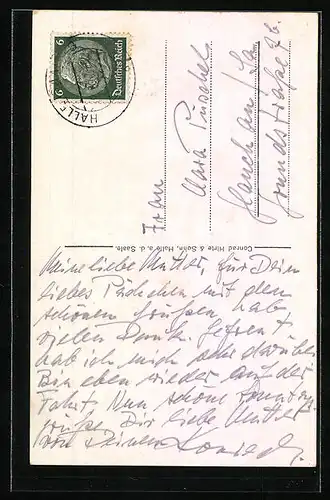 6 Deutsches Reich 6
HALLE
Frau
Clara Püschel
Glauchau / Sa
Grundstraße
Conrad Hirte & Sohn, Halle a. d. Saale.
Meine liebe Mutter, für Dein
liebes Päckchen mit den
schönen hab
vielen Dank. Gefreut
hab ich mich sehr darüber
Bin eben wieder auf der
Fahrt. Nun schöne Sonntag
grüße Dir liebe Mutter
von Deinem